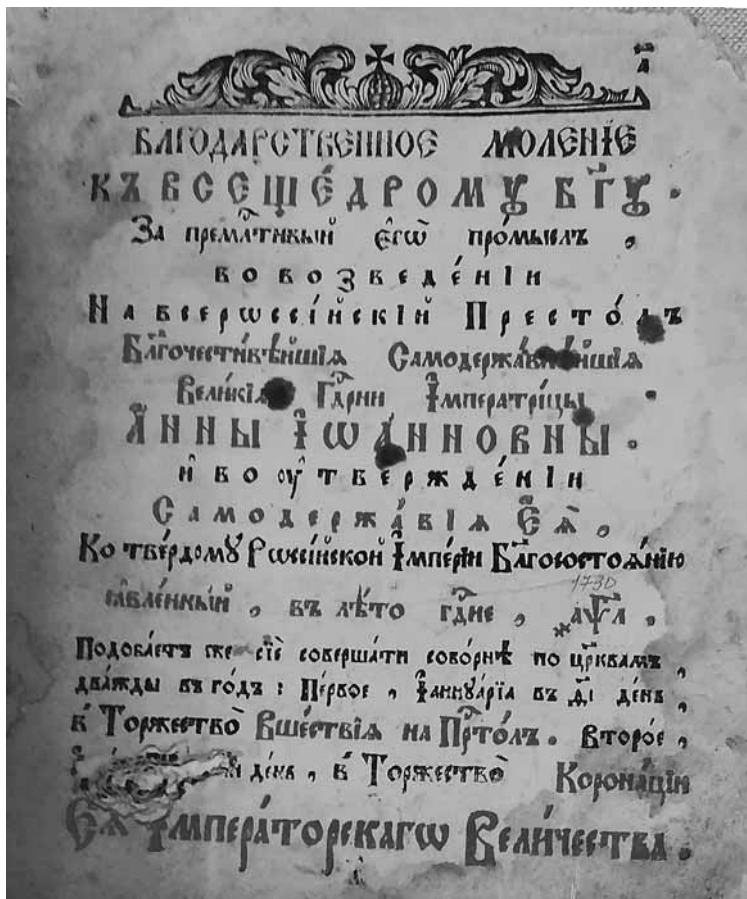 а҃
БЛАГОДАРСТВЕННОЕ МОЛЕНІЕ
КЪ ВСЕЩЕ́ДРОМꙊ БГ҃Ꙋ.
За премл҃тивый є҆гѡ̀ про́мыслъ,
во возведе́нїи
На всерѡссі́йскїй Престо́лъ
Бл҃гочести́вѣйшїѧ Самодержа́внѣйшїѧ
Вели́кїѧ Гдⷭ҇рни І҆мператрі́цы
А҆́ННЫ І҆ѠА́ННОВНЫ.
и҆ во оу҆твержде́нїи
Самодержа́вїѧ Є҆ѧ̀,
Ко тве́рдомꙋ Рѡссі́йской І҆мпе́рїи Бл҃госостоѧ́нїю
ꙗ҆вле́нный, въ лѣ́то гдⷭ҇не, *а҂ѱл҃.
1730
Подоба́етъ же сїѐ соверша́ти собо́рнѣ по цр҃квамъ,
два́жды въ го́дъ: Пе́рвое, І҆аннꙋа́рїа въ д҃і де́нь,
в̾ Торжество̀ Вше́ствїѧ на Прⷭ҇то́лъ. Второ́е,
де́нь, в̾ Торжество̀ Корона́цїи
Є҆ѧ̀ І҆мпера́торскагѡ Вели́чества.